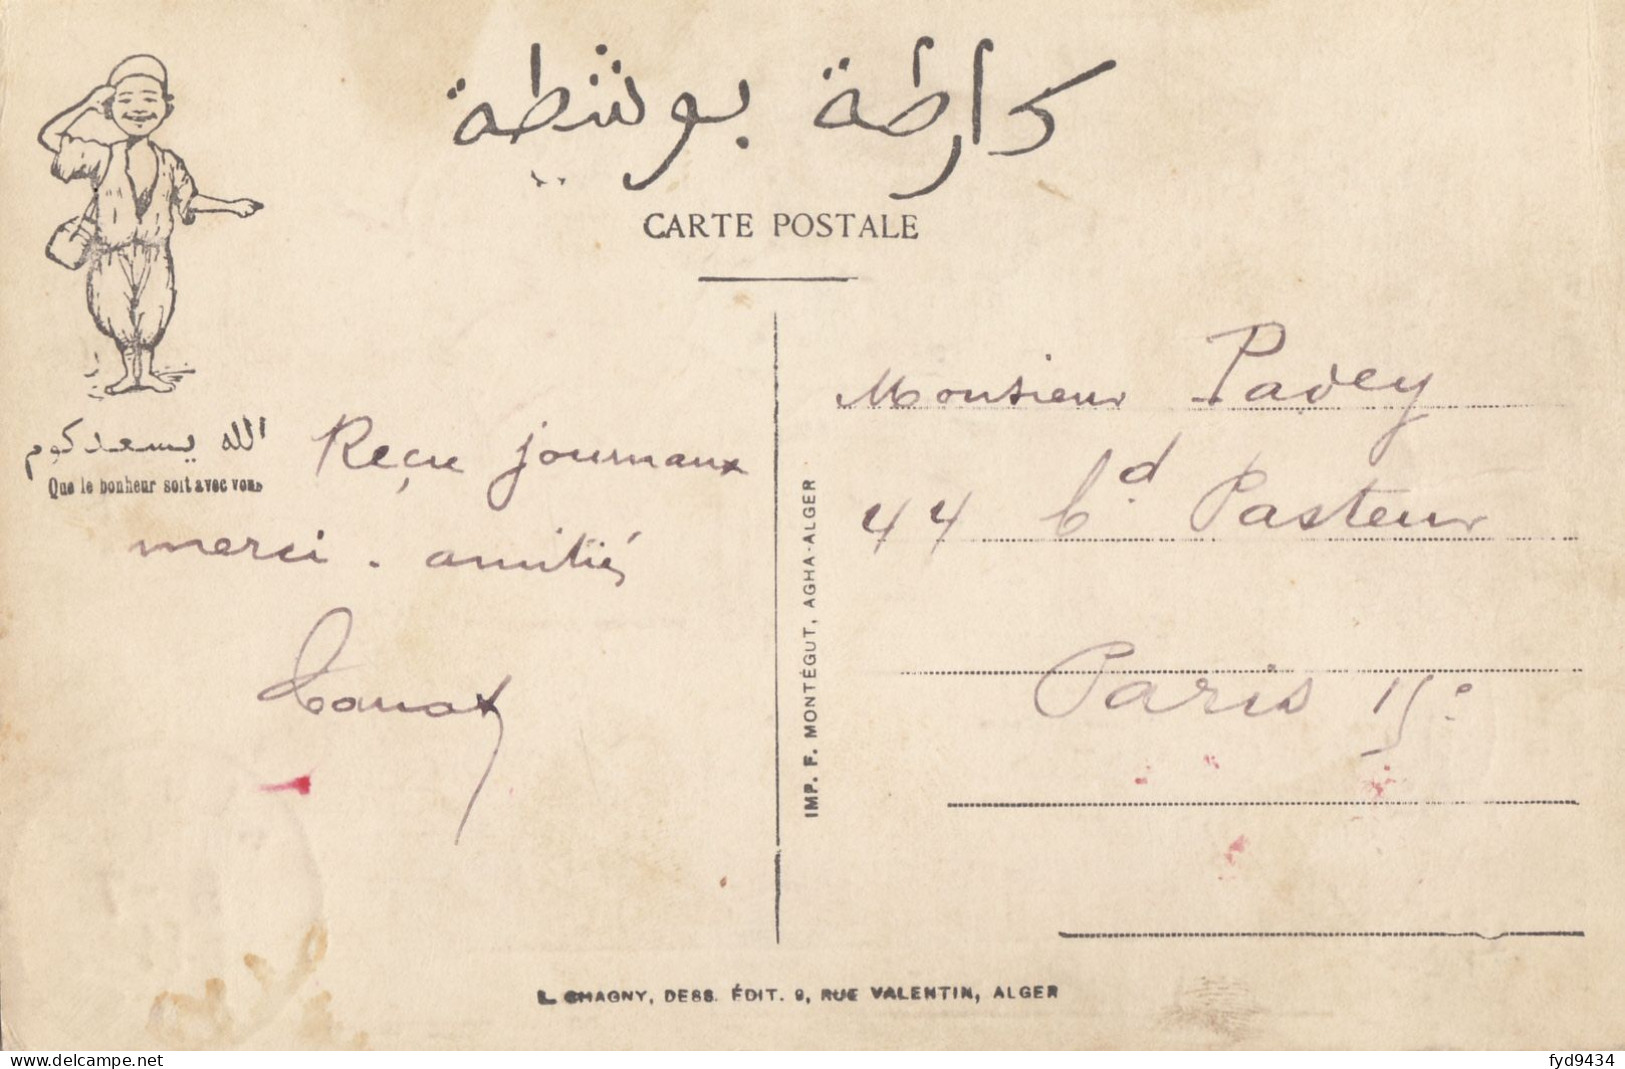 كارطة بوشطة
CARTE POSTALE
الله يسعدكوم
Que le bonheur soit avec vous
Reçu journaux
merci. amitiés
Monsieur Pavey
44 bd Pasteur
Paris 15e
IMP. F. MONTÉGUT, AGHA-ALGER
L. CHAGNY, DESS. ÉDIT. 9, RUE VALENTIN, ALGER
fyd9434